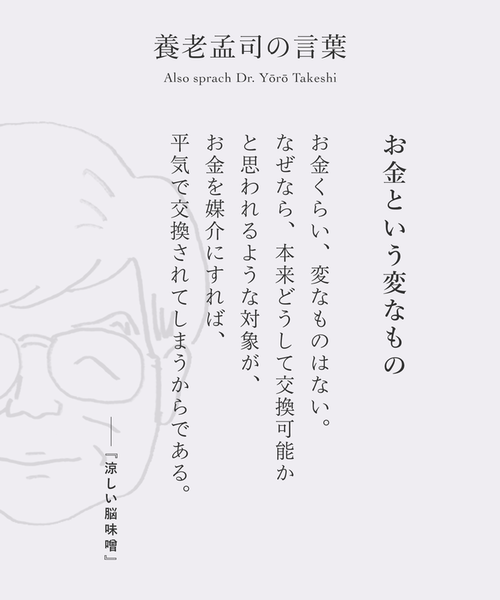 養老孟司の言葉
Also sprach Dr. Yōrō Takeshi
お金という変なもの
お金くらい、変なものはない。
なぜなら、本来どうして交換可能か
と思われるような対象が、
お金を媒介にすれば、
平気で交換されてしまうからである。
──『涼しい脳味噌』